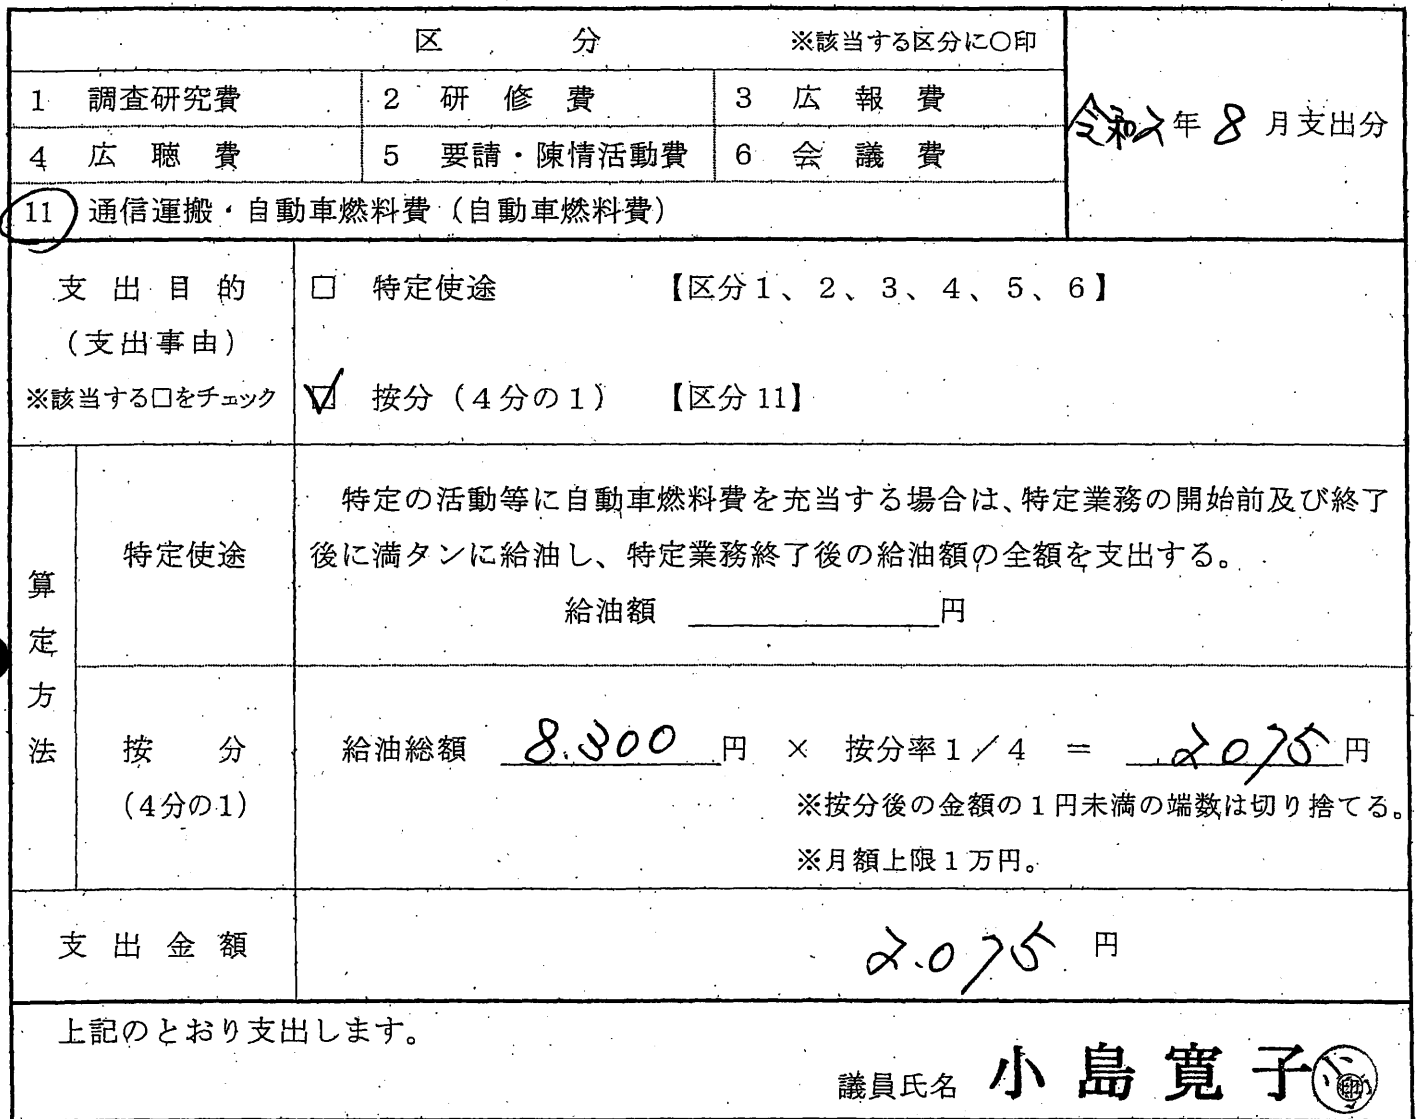 区　分　※該当する区分に○印
1 調査研究費　2 研修費　3 広報費
令和2年8月支出分
4 広聴費　5 要請・陳情活動費　6 会議費
11 通信運搬・自動車燃料費（自動車燃料費）
支出目的　□ 特定使途　【区分1、2、3、4、5、6】
（支出事由）
※該当する□をチェック　☑ 按分（4分の1）　【区分11】
算定方法
特定使途
特定の活動等に自動車燃料費を充当する場合は、特定業務の開始前及び終了
後に満タンに給油し、特定業務終了後の給油額の全額を支出する。
給油額　＿＿＿＿円
按分
（4分の1）
給油総額　8.300円　×　按分率1／4　＝　2075円
※按分後の金額の1円未満の端数は切り捨てる。
※月額上限1万円。
支出金額　2.075円
上記のとおり支出します。
議員氏名　小島寛子